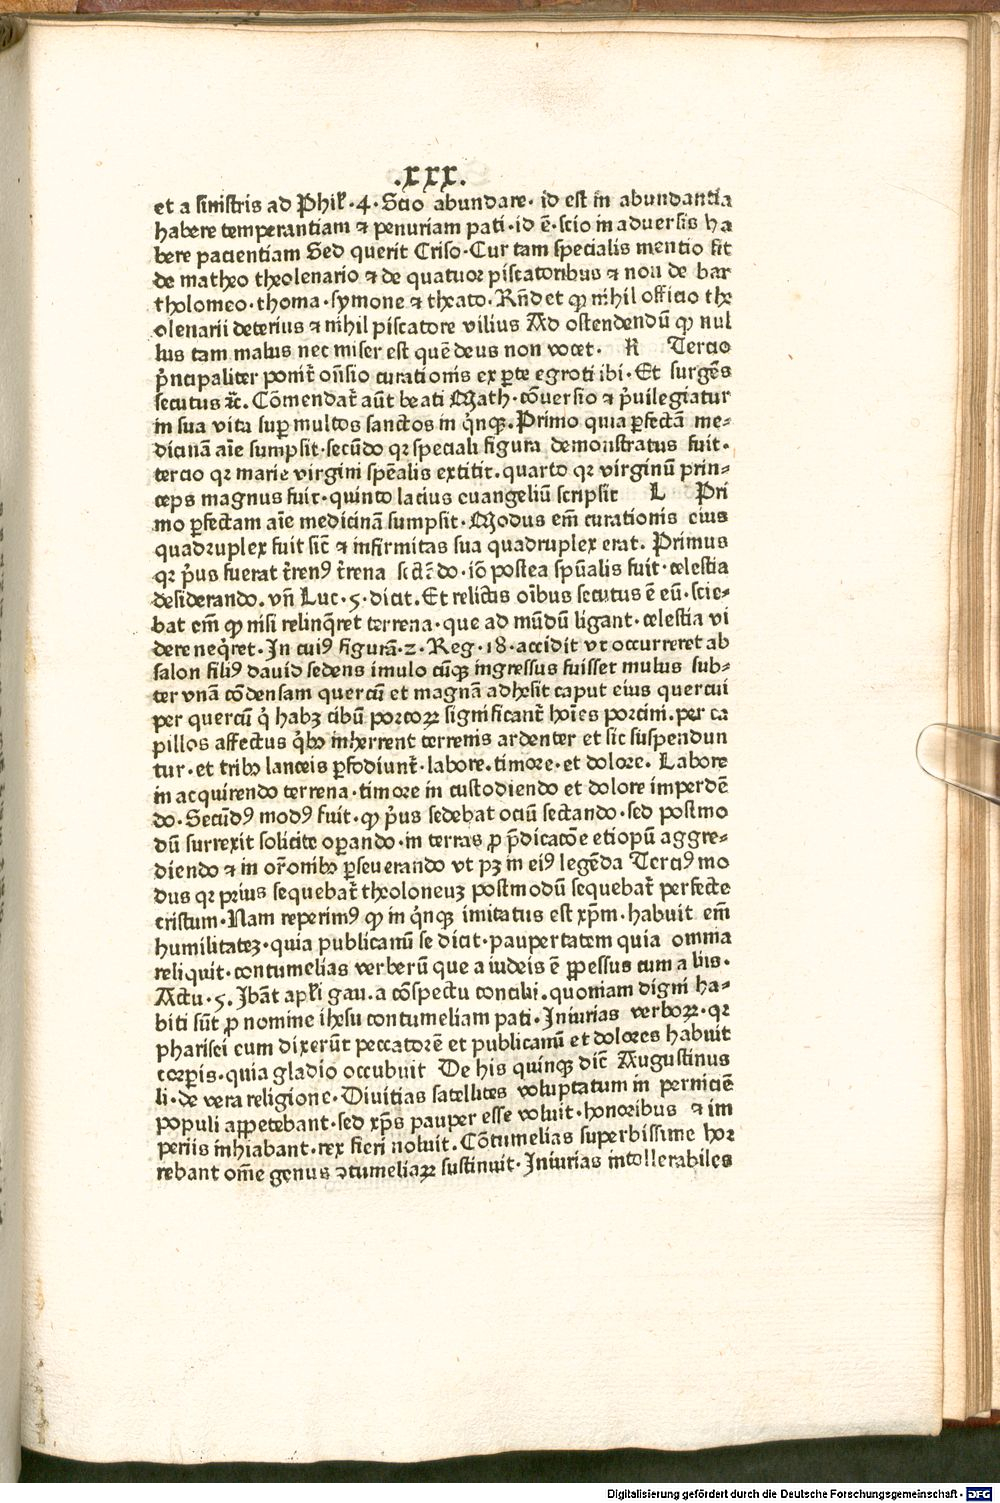 .xxx.
et a sinistris ad Phił·4·Scio abundare· id est in abundantia
habere temperantiam ⁊ penuriam pati·id ē·scio in aduersis ha
bere pacientiam Sed querit Criso·Cur tam specialis mentio fit
de matheo theolenario ⁊ de quatuor piscatoribus ⁊ non de bar
tholomeo·thoma·symone ⁊ theato. Rn̄det ꝙ nihil officio the
olenarii deterius ⁊ nihil piscatore vilius Ad ostendendū ꝙ nul
lus tam malus nec miser est quē deus non vocet· R Tercio
p̄ncipaliter ponit̄ on̄sio curationis ex ꝑte egroti ibi·Et surgēs
secutus ⁊c̄. Cōmendat̄ aūt beati Math·cōuersio ⁊ p̄uilegiatur
in sua vita suꝑ multos sanctos in q̇nqꝫ.Primo quia ꝑfectā me-
dicinā aīe sumpsit·secūdo qꝛ speciali figura demonstratus fuit·
tercio qꝛ marie virgini spēalis extitit.quarto qꝛ virginū prin-
ceps magnus fuit·quinto lacius euangeliū scripsit L Pri
mo ꝑfectam aīe medicinā sumpsit·Modus em̄ curationis eius
quadruplex fuit sic̄ ⁊ infirmitas sua quadruplex erat. Primus
qꝛ p̄us fuerat t̄renꝰ t̄rena sectādo·iō postea spūalis fuit·celestia
desiderando. vn̄ Luc·5·dicit.Et relictis oībus secutus ē eū·scie-
bat em̄ ꝙ nisi relinq̄ret terrena·que ad mūdū ligant·celestia vi
dere neq̇ret·In cuiꝰ figurā·2·Reg·18·accidit vt occurreret ab
salon filiꝰ dauid sedens imulo cūqꝫ ingressus fuisset mulus sub-
ter vnā cōdensam quercū et magnā adhesit caput eius quercui
per quercū q̇ habꝫ cibū porcoꝝ significant̄ hoīes porcini.per ca
pillos affectus q̇bꝰ inherrent terrenis ardenter et sic suspendun
tur·et tribꝰ lanceis ꝑfodiunt̄·labore.timore·et dolore. Labore
in acquirendo terrena·timore in custodiendo et dolore imperdē
do·Secūdꝰ modꝰ fuit·ꝙ p̄us sedebat ociū sectando·sed postmo
dū surrexit solicite oꝑando·in terras ꝓ p̄dicacōe etiopū aggre-
diendo ⁊ in or̄onibꝰ ꝑseuerando vt pꝫ in eiꝰ legēda Terciꝰ mo
dus qꝛ prius sequebat̄ theoloneuꝫ postmodū sequebat̄ perfecte
cristum·Nam reperimꝰ ꝙ in q̇nqꝫ imitatus est xp̄m·habuit em̄
humilitateꝫ·quia publicanū se dicit·paupertatem quia omnia
reliquit·contumelias verberū que a iudeis ē ꝑpessus cum aliis·
Actu·5.Ibāt apłi gau.a cōspectu concilii.quoniam digni ha-
biti sūt ꝓ nomine ihesu contumeliam pati·Iniurias verboꝝ·qꝛ
pharisei eum dixerūt peccatorē et publicanū et dolores habuit
corꝑis·quia gladio occubuit De his quinqꝫ dic̄ Augustinus
li·de vera religione·Diuitias satellites voluptatum in perniciē
populi appetebant·sed xp̄s pauper esse voluit·honoribus ⁊ im
periis inhiabant·rex fieri noluit.Cōtumelias superbissime hor
rebant om̄e genus ꝯtumeliaꝝ sustinuit·Iniurias intollerabiles
Digitalisierung gefördert durch die Deutsche Forschungsgemeinschaft - DFG